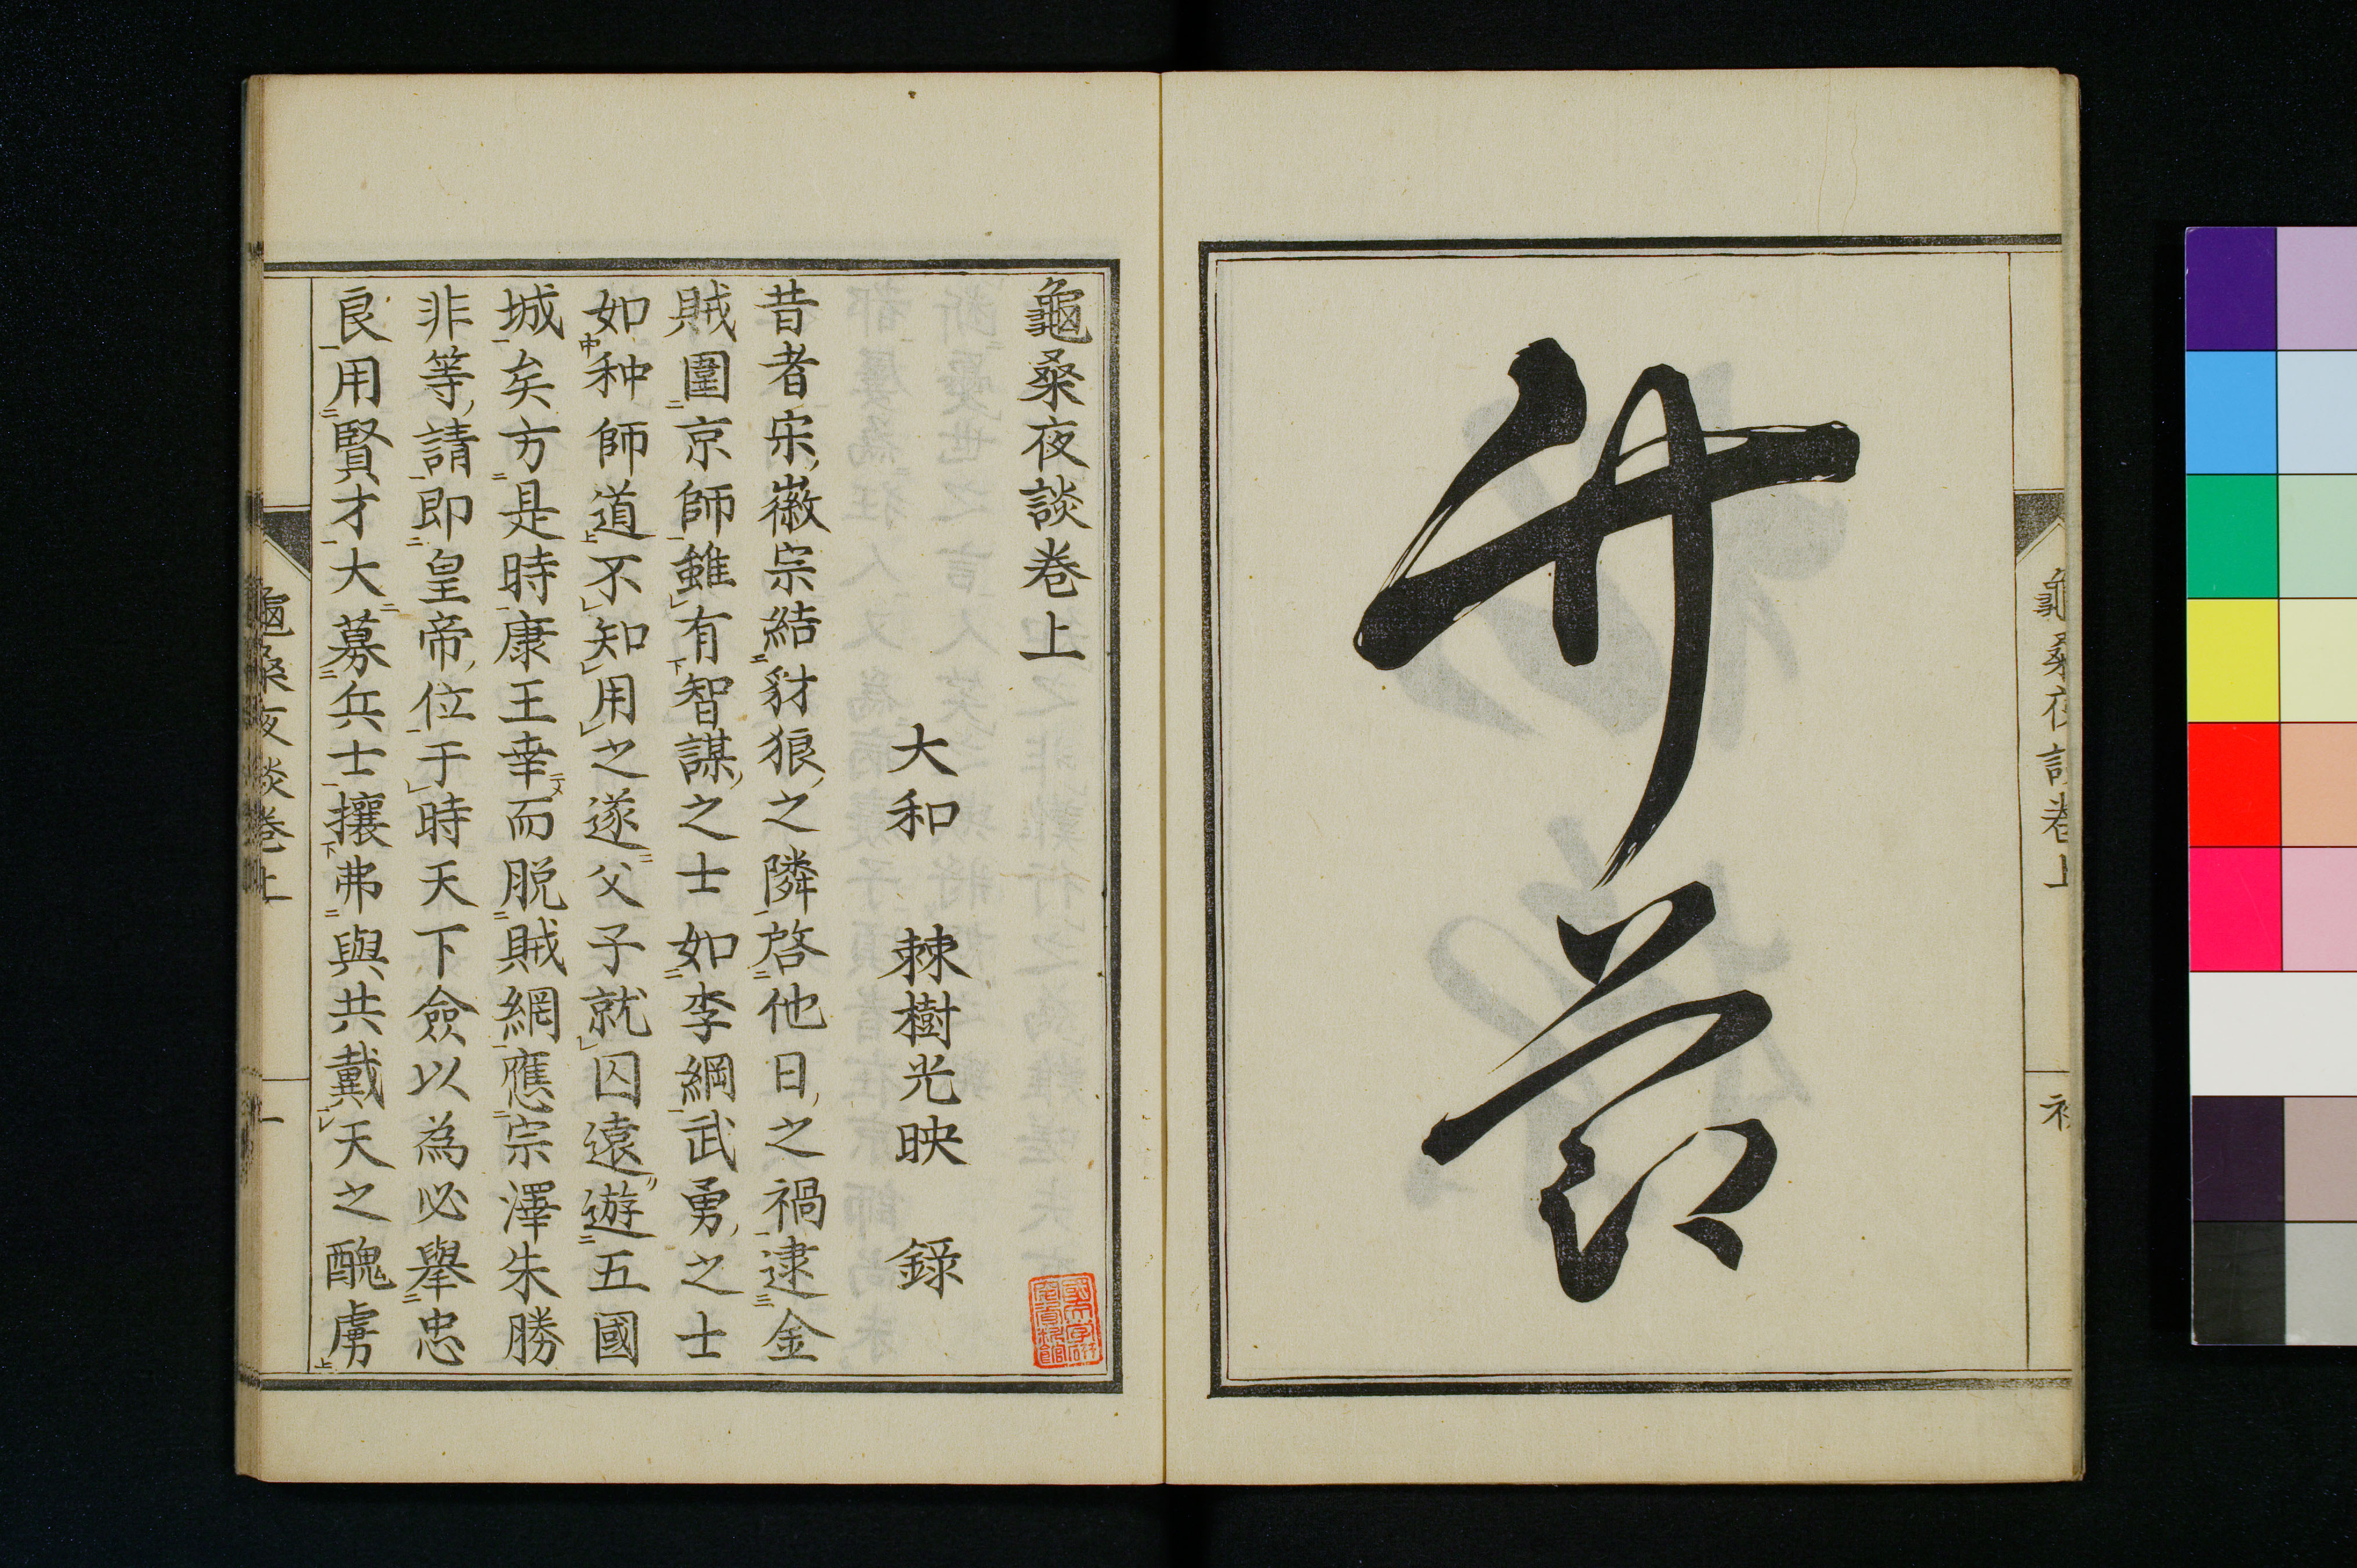 龜桑夜談卷上
竹節
龜桑夜談卷上
大和 棘樹光映 錄
昔者宋徽宗結豺狼之隣啓他日之禍逮金
賊圍京師雖有智謀之士如李綱武勇之士
如种師道不知用之遂父子就囚遠遊五國
城矣方是時康王幸而脱賊網應宗澤朱勝
非等請即皇帝位于時天下僉以為必擧忠
良用賢才大募兵士攘弗與共戴天之醜虜
龜桑夜談卷上
一